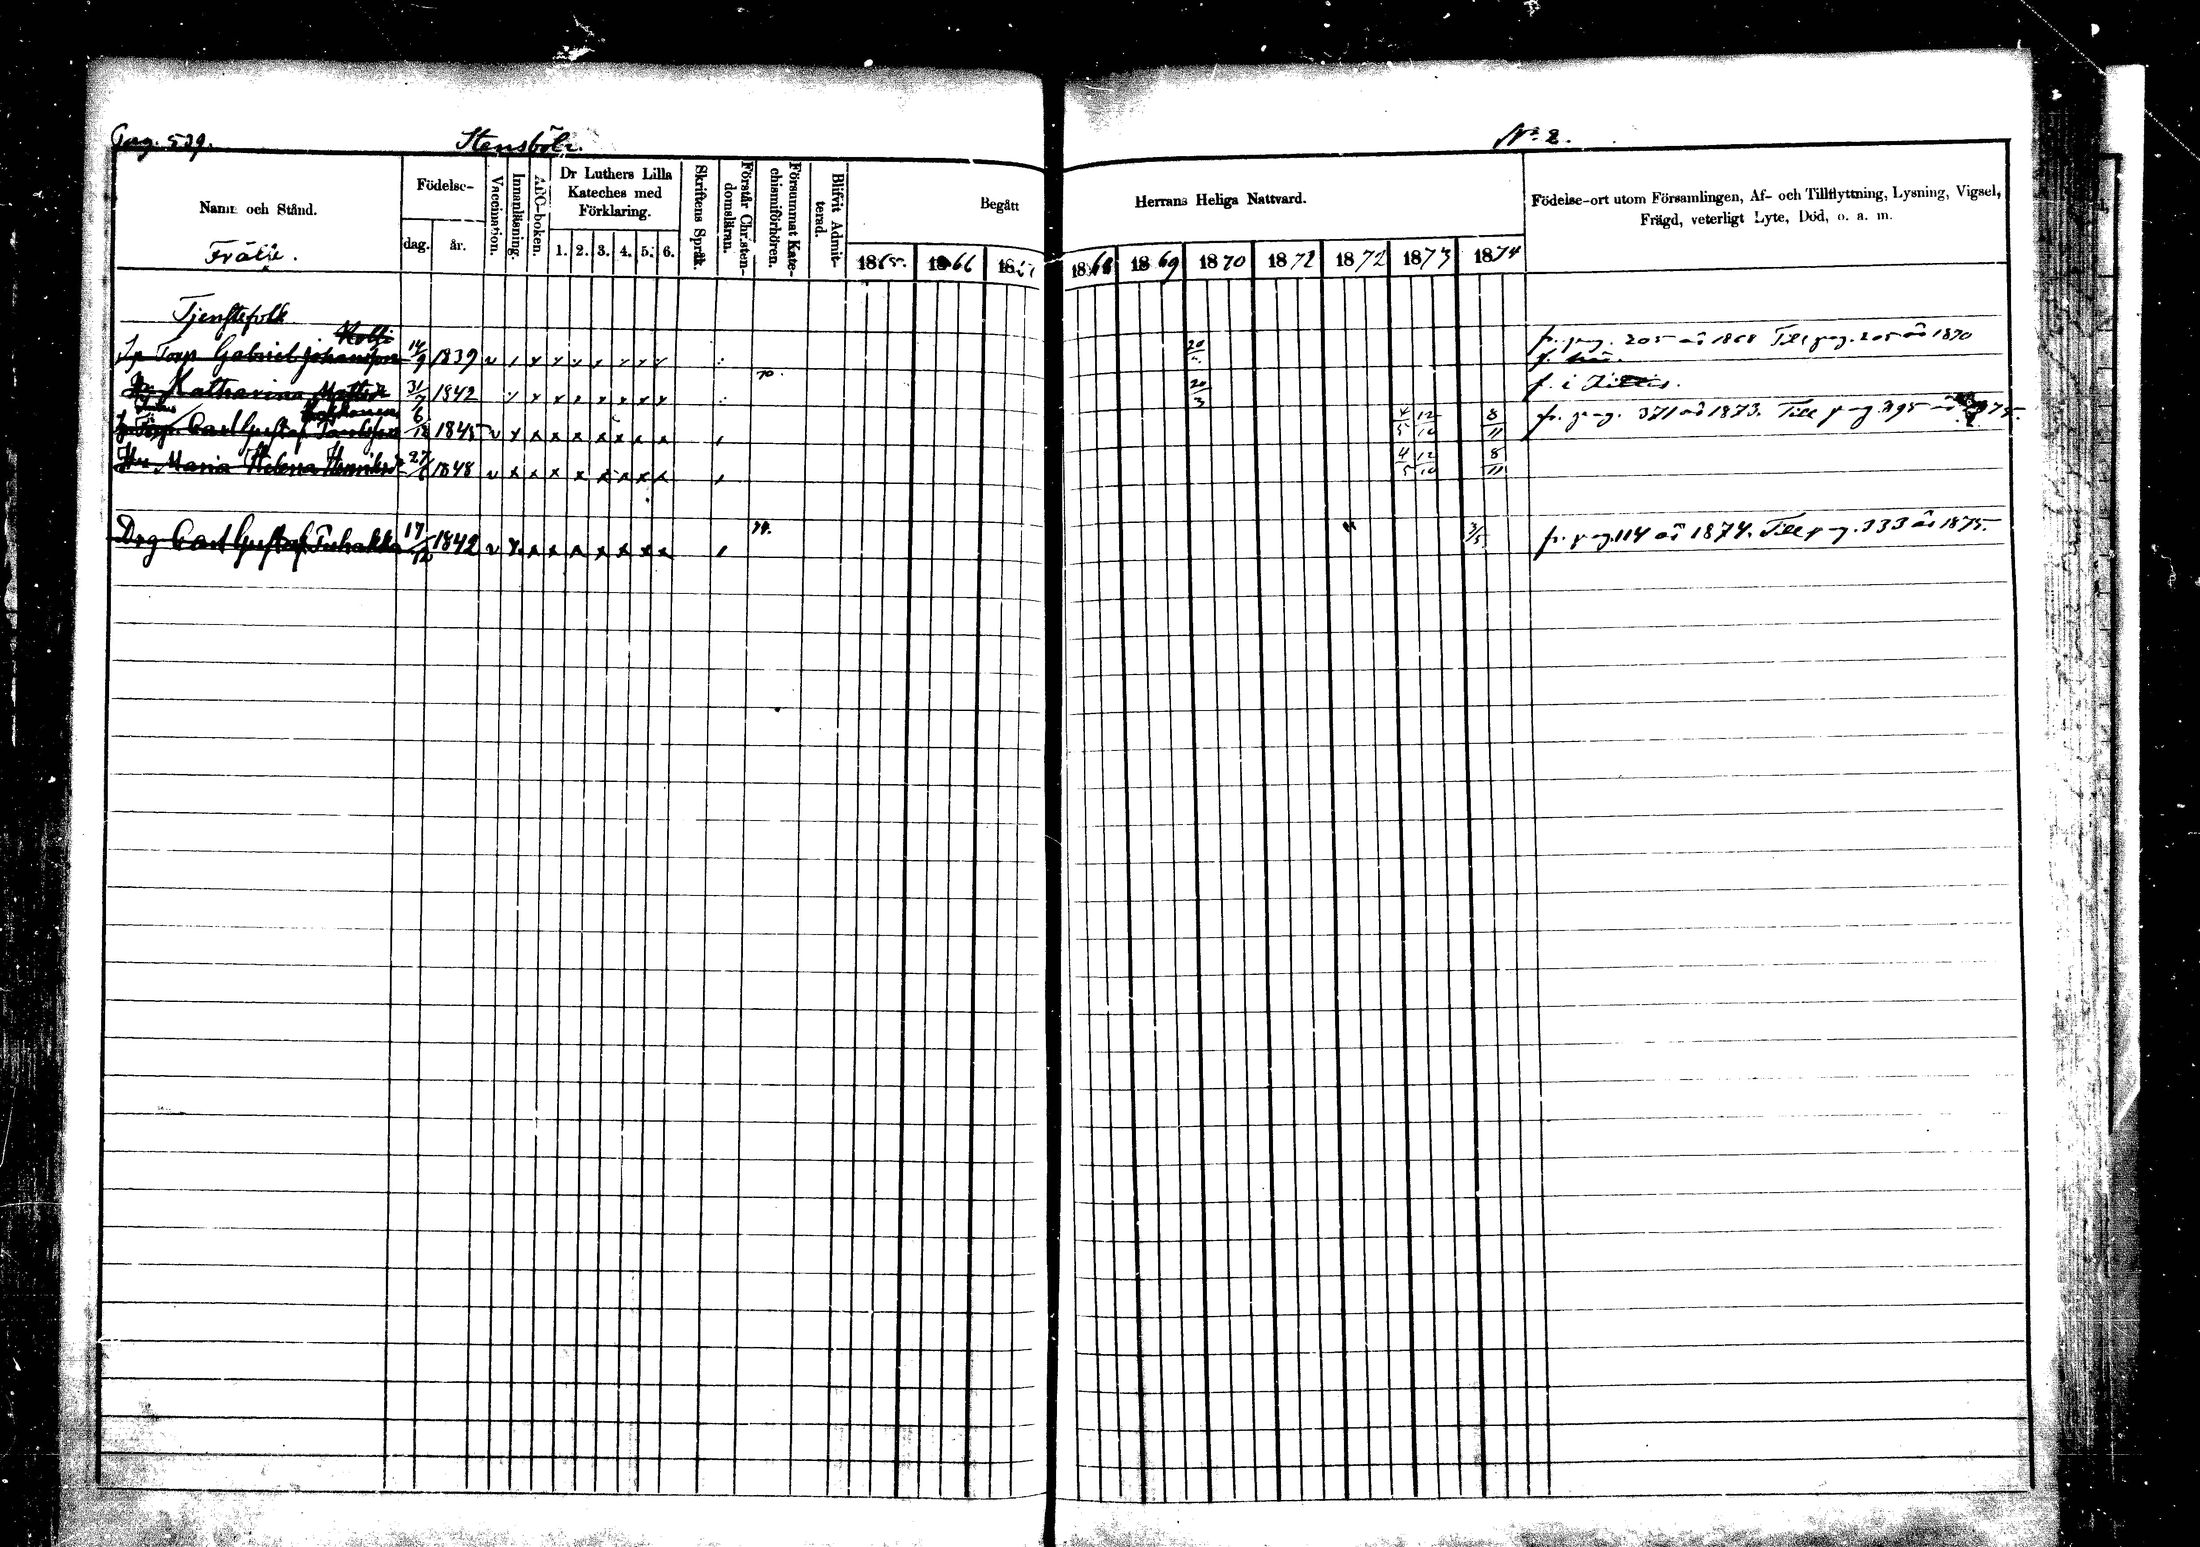 Pag. 539. Stensböle. No 2.
Namn och Stånd. Födelse- dag. år. Vaccination. Innanläsning. ABC-boken. Dr Luthers Lilla Kateches med Förklaring. 1. 2. 3. 4. 5. 6. Skriftens Språk. Förstår Christendomsläran. Försummat Katechismiförhören. Blifvit Admitterad. Begått Herrans Heliga Nattvard. Födelse-ort utom Församlingen, Af- och Tillflyttning, Lysning, Vigsel, Frägd, veterligt Lyte, Död, o. a. m.
1865. 1866 1867 1868 1869 1870 1871 1872 1873 1874
Tjenstefolk
Torp. Gabriel Johansson 14/9 1839 fr. pag. 205 år 1868 Till pag. 205 år 1870
Katharina 31/7 1842 70. 20/3 f. i
Torp. Carl Gustaf 6/12 1845 4/5 12/10 8/11 fr. pag. 371 år 1873. Till pag.
Maria Helena Henriksd 27/6 1848 4/5 12/10 8/11
Drg Carl Gustaf 17/12 1842 74. 3/5. fr. pag 114 år 1874. Till pag. 333 år 1875.